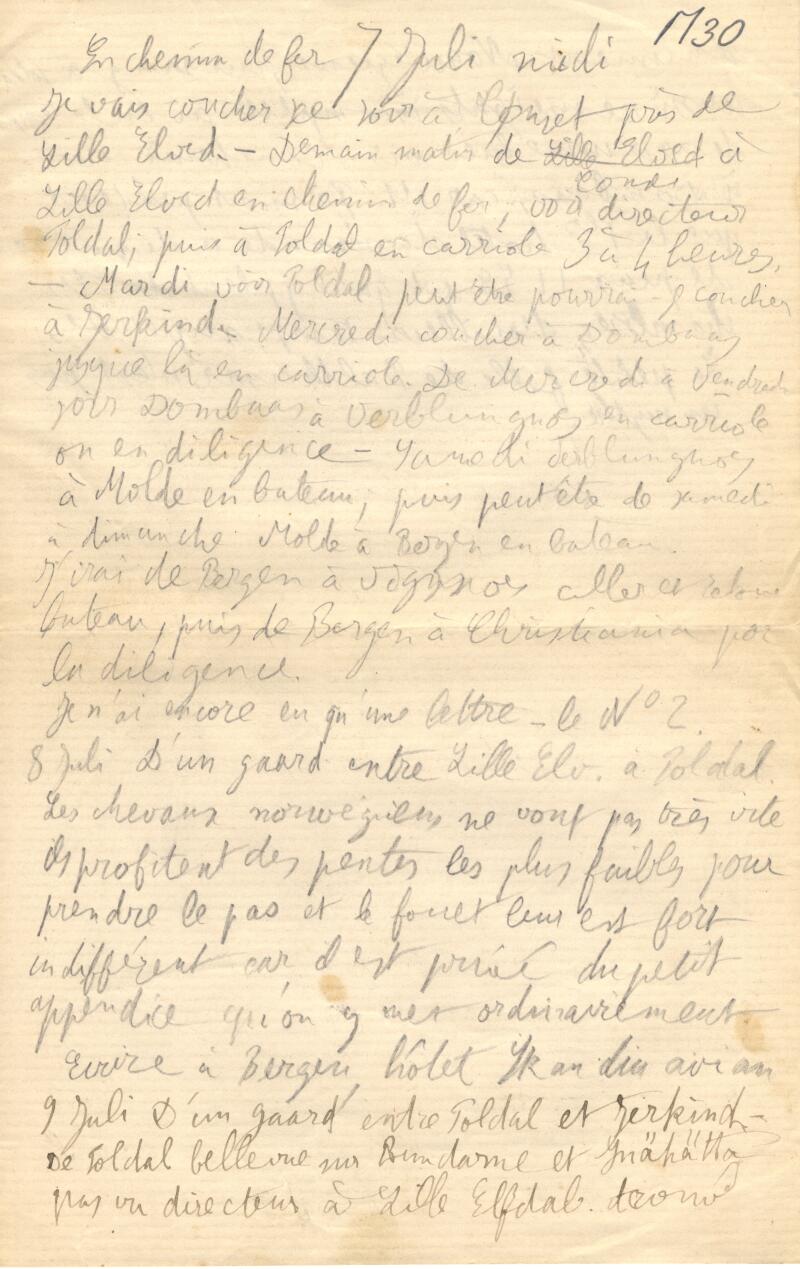 1730
En chemin de fer 7 Juli midi
Je vais coucher ce soir à Conset près de
Lille Elved. — Demain matin de Lille Elved à
Lille Elved en chemin de fer, voir directeur
Foldal, puis à Foldal en carriole 3 à 4 heures.
— Mardi voir Foldal peut être pourrai-je coucher
à Jerkind. Mercredi coucher à Dombaas
jusque là en carriole. De Mercredi à Vendredi
soir Dombaas à Veblungnoes en carriole
ou en diligence — Samedi Veblungnoes
à Molde en bateau, puis peut être de samedi
à dimanche Molde à Bergen en bateau.
J'irai de Bergen à Vigsnoes aller et retour
bateau, puis de Bergen à Christiania par
la diligence.
Je n'ai encore eu qu'une lettre — le No 2.
8 Juli D'un gaard entre Lille Elv. à Foldal.
Les chevaux norwégiens ne vont pas très vite
ils profitent des pentes les plus faibles pour
prendre le pas et le fouet leur est fort
indifférent car il est privé du petit
appendice qu'on y met ordinairement.
Ecrire à Bergen, hôtel Skandinavian
9 Juli D'un gaard entre Foldal et Jerkind —
De Foldal belle vue sur Rundarne et Snähätta
pas vu directeur à Lille Elfdal.